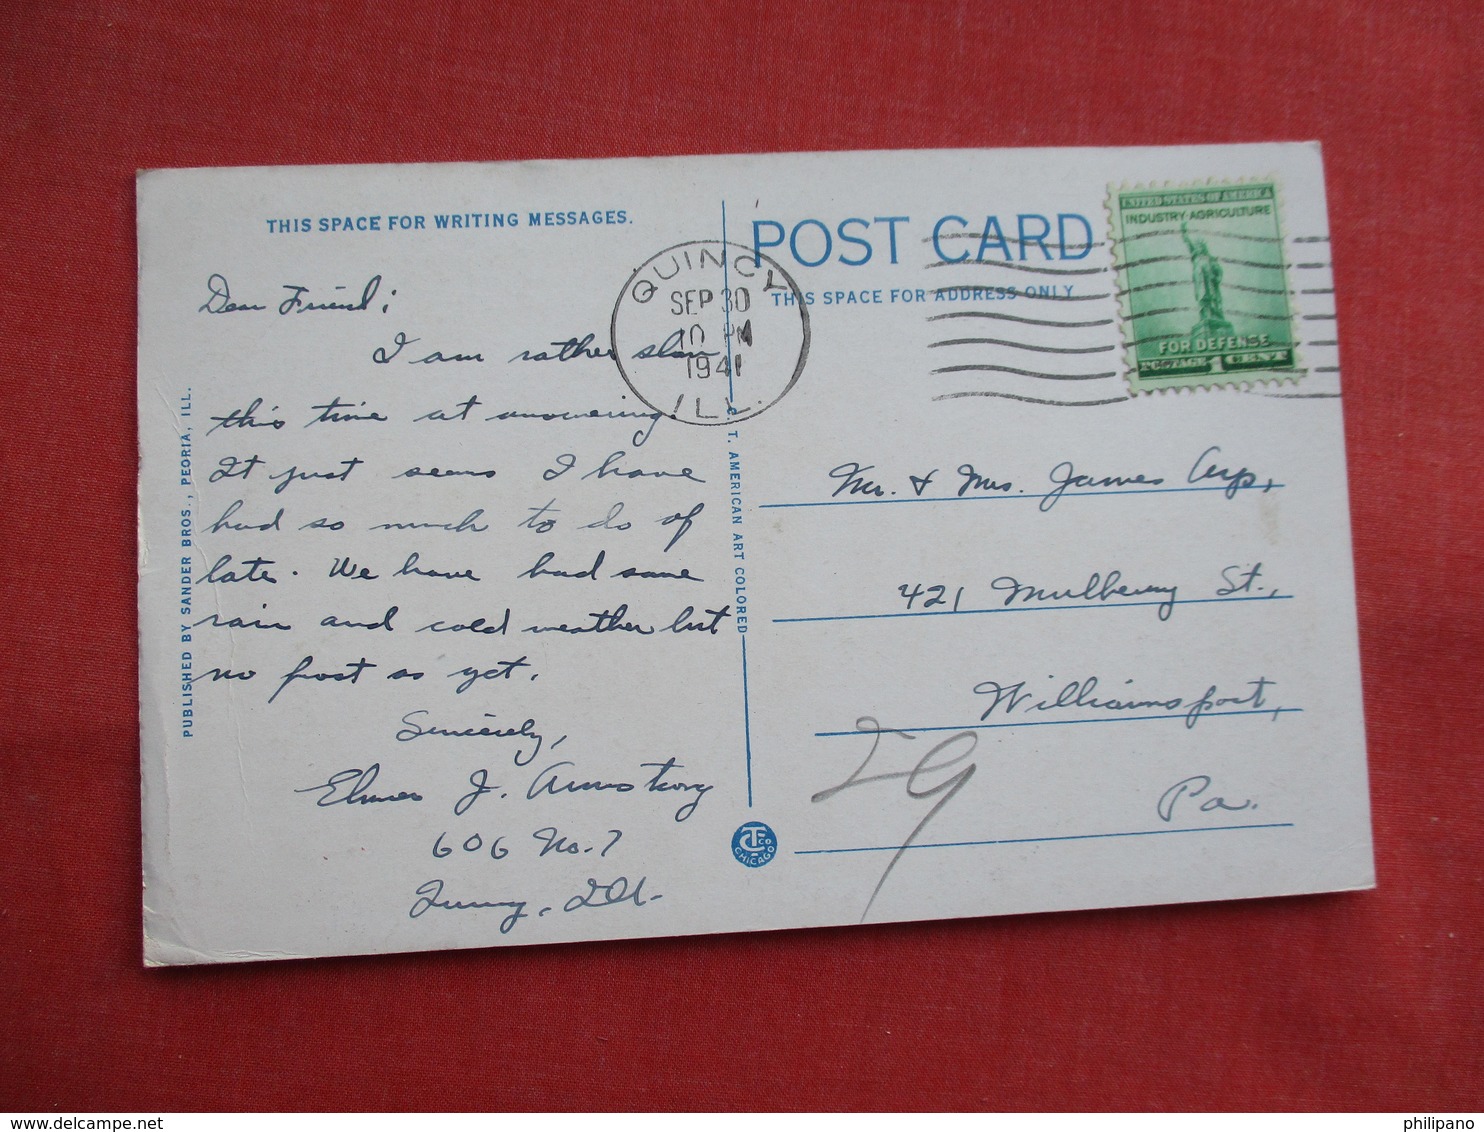 THIS SPACE FOR WRITING MESSAGES.
Dear Friend;
I am rather slow
this time at answering.
It just seems I have
had so much to do of
late. We have had some
rain and cold weather but
no frost as yet.
Sincerely,
Elmer J. Armstrong
606 No. 7
Quincy, Ill.
PUBLISHED BY SANDER BROS., PEORIA, ILL.
C. T. AMERICAN ART COLORED
POST CARD
THIS SPACE FOR ADDRESS ONLY
QUINCY
SEP 30
10 PM
1941
ILL.
UNITED STATES OF AMERICA
INDUSTRY·AGRICULTURE
FOR DEFENSE
POSTAGE 1 CENT
Mr. & Mrs. James Arp,
421 Mulberry St.,
Williamsport,
Pa.
29
CT CO
CHICAGO
delcampe.net
philipano